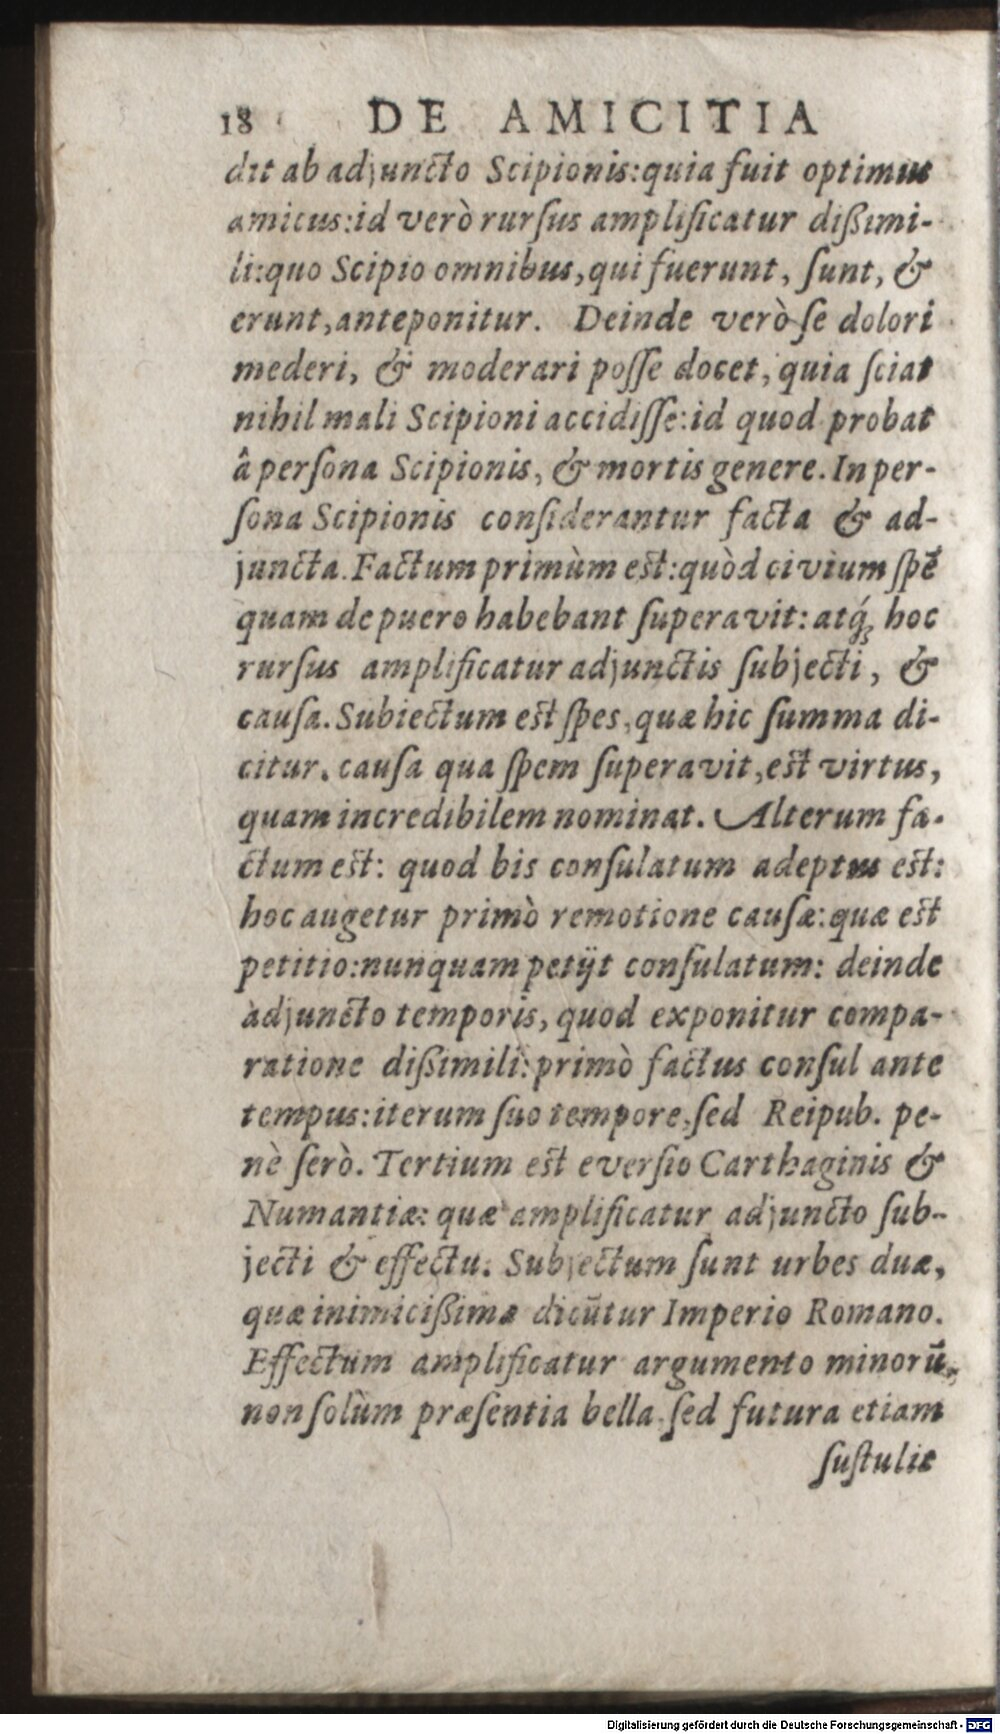 18 DE AMICITIA
dit ab adjuncto Scipionis: quia fuit optimus
amicus: id verò rurſus amplificatur dißimi-
li: quo Scipio omnibus, qui fuerunt, ſunt, &
erunt, anteponitur. Deinde verò ſe dolori
mederi, & moderari poſſe docet, quia ſciat
nihil mali Scipioni accidiſſe: id quod probat
â perſona Scipionis, & mortis genere. In per-
ſona Scipionis conſiderantur facta & ad-
juncta. Factum primùm est: quòd civium ſpē
quam de puero habebant ſuperavit: atq́ue hoc
rurſus amplificatur adjunctis ſubjecti, &
cauſa. Subiectum est ſpes, quæ hic ſumma di-
citur. cauſa qua ſpem ſuperavit, est virtus,
quam incredibilem nominat. Alterum fa-
ctum est: quod bis conſulatum adeptus est:
hoc augetur primò remotione cauſæ: quæ est
petitio: nunquam petijt conſulatum: deinde
adjuncto temporis, quod exponitur compa-
ratione dißimili: primò factus conſul ante
tempus: iterum ſuo tempore, ſed Reipub. pe-
nè ſerò. Tertium est everſio Carthaginis &
Numantiæ: quæ amplificatur adjuncto ſub-
jecti & effectu. Subjectum ſunt urbes duæ,
quæ inimicißimæ dicūtur Imperio Romano.
Effectum amplificatur argumento minorū,
non ſolùm præſentia bella ſed futura etiam
ſuſtulit
Digitalisierung gefördert durch die Deutsche Forschungsgemeinschaft - DFG